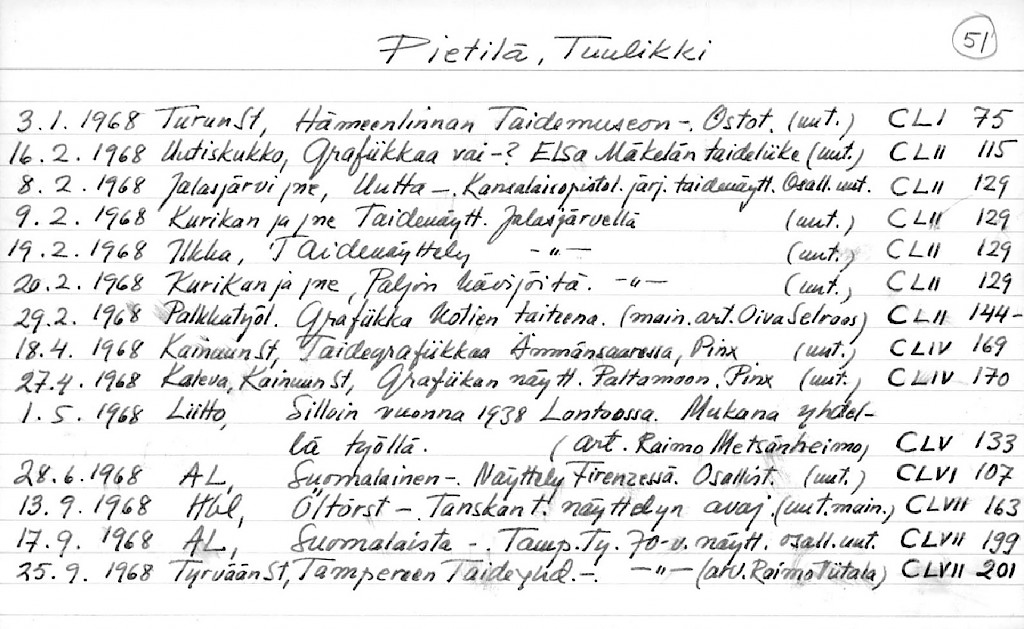 Pietilä, Tuulikki
51
3.1. 1968 TurunSt, Hämeenlinnan Taidemuseon -. Ostot. (uut.) CLI 75
16.2. 1968 Uutiskukko, Grafiikkaa vai -? Elsa Mäkelän taideliike (uut.) CLII 115
8.2. 1968 Jalasjärvi jne, Uutta -. Kansalaisopistol. järj. taidenäytt. Osall. uut. CLII 129
9.2. 1968 Kurikan ja jne Taidenäytt. Jalasjärvellä (uut.) CLII 129
19.2. 1968 Ilkka, Taidenäyttely -"- (uut.) CLII 129
20.2. 1968 Kurikan ja jne, Paljon kävijöitä. -"- (uut.) CLII 129
29.2. 1968 Palkkatyöl. Grafiikka kotien taiteena. (main. art. Oiva Selroos) CLII 144-
18.4. 1968 KainuunSt, Taidegrafiikkaa Ämmänsaaressa, Pinx (uut.) CLIV 169
27.4. 1968 Kaleva, KainuunSt, Grafiikan näytt. Paltamoon. Pinx (uut.) CLIV 170
1.5. 1968 Liitto, Silloin vuonna 1938 Lontoossa. Mukana yhdel-
lä työllä. (art. Raimo Metsänheimo) CLV 133
28.6.1968 AL, Suomalainen -. Näyttely Firenzessä. Osallist. (uut.) CLVI 107
13.9. 1968 Hbl, Öltörst -. Tanskan t. näyttelyn avaj. (uut. main.) CLVII 163
17.9. 1968 AL, Suomalaista -. Tamp. Ty. 70-v. näytt. osall. uut. CLVII 199
25.9. 1968 TyrväänSt, Tampereen Taideyhd. -. -"- (arv. Raimo Tiitala) CLVII 201